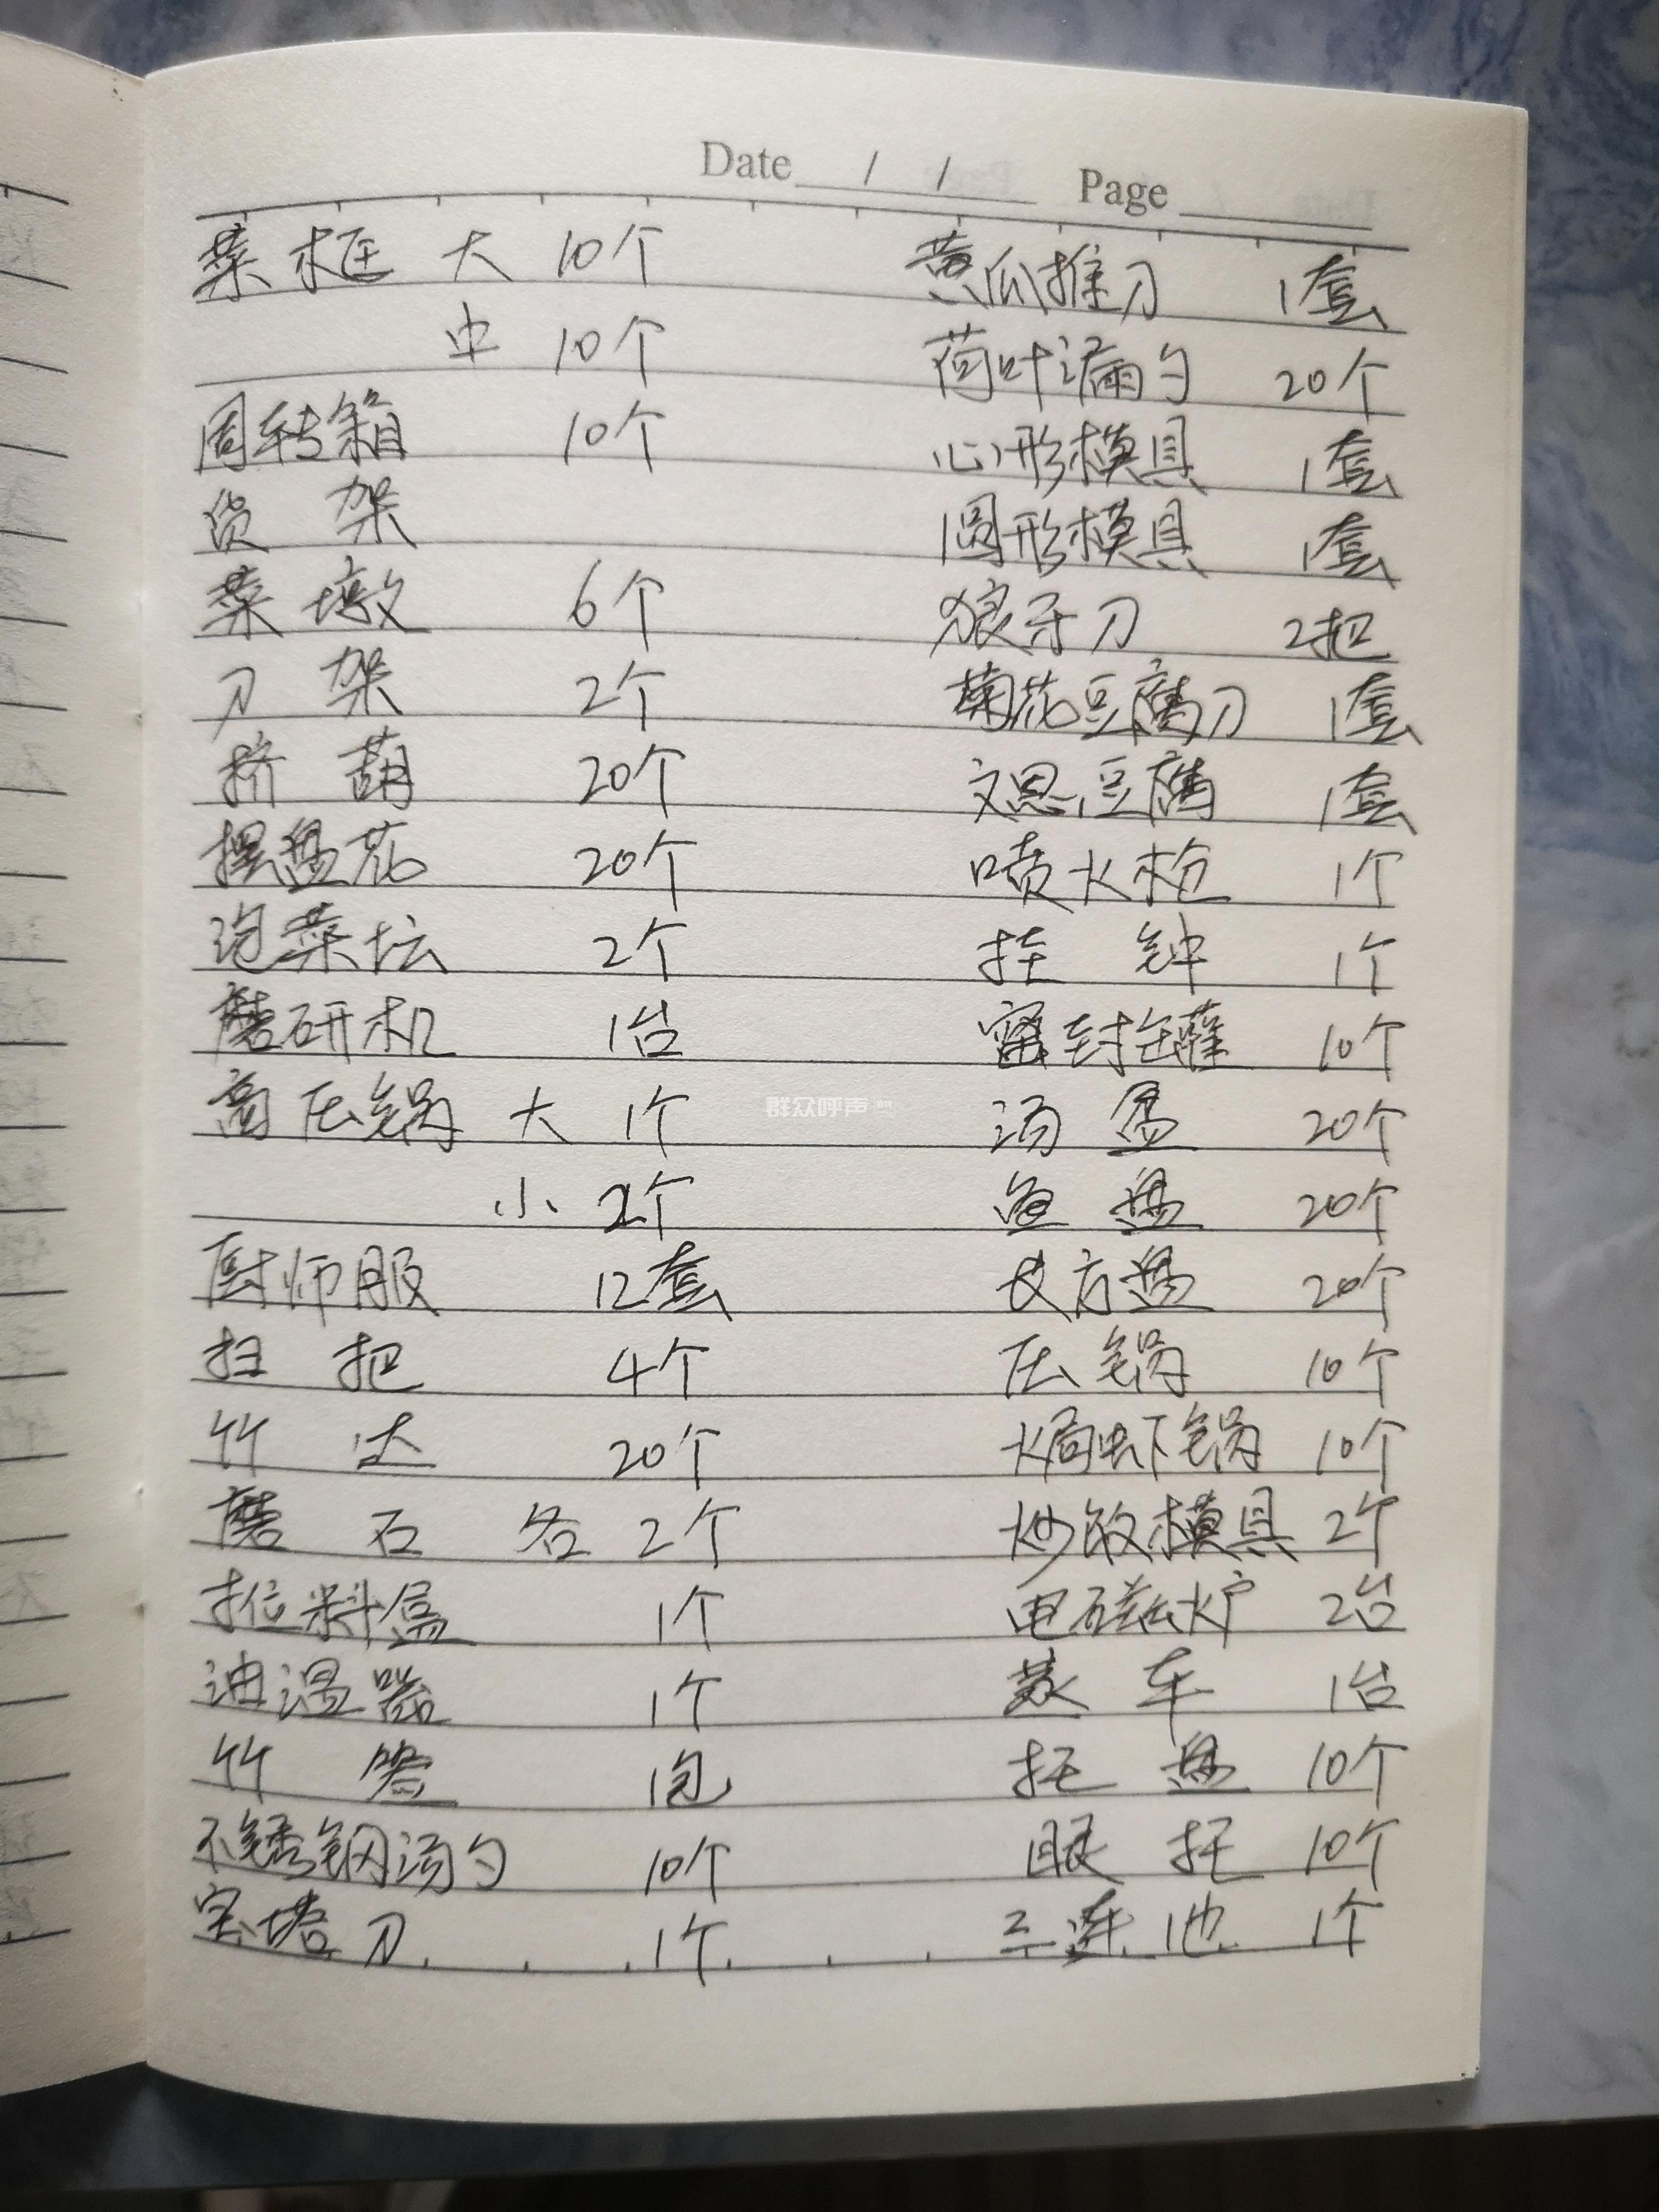 Date / / Page
菜框 大 10个
中 10个
周转箱 10个
货架
菜墩 6个
刀架 2个
挤葫 20个
摆盘花 20个
泡菜坛 2个
磨研机 1台
高压锅 大 1个
小 2个
厨师服 12套
扫把 4个
竹达 20个
磨石 各 2个
拉料盒 1个
油温器 1个
竹 1包
不锈钢汤勺 10个
宝塔刀 1个
黄瓜推刀 1套
荷叶漏勺 20个
心形模具 1套
圆形模具 1套
狼牙刀 2把
菊花豆腐刀 1套
文思豆腐 1套
喷火枪 1个
挂钟 1个
密封罐 10个
汤 20个
鱼盘 20个
长方盘 20个
压锅 10个
焗虾锅 10个
炒饭模具 2个
电磁炉 2台
蒸车 1台
托盘 10个
眼托 10个
三连池 1个
群众呼声